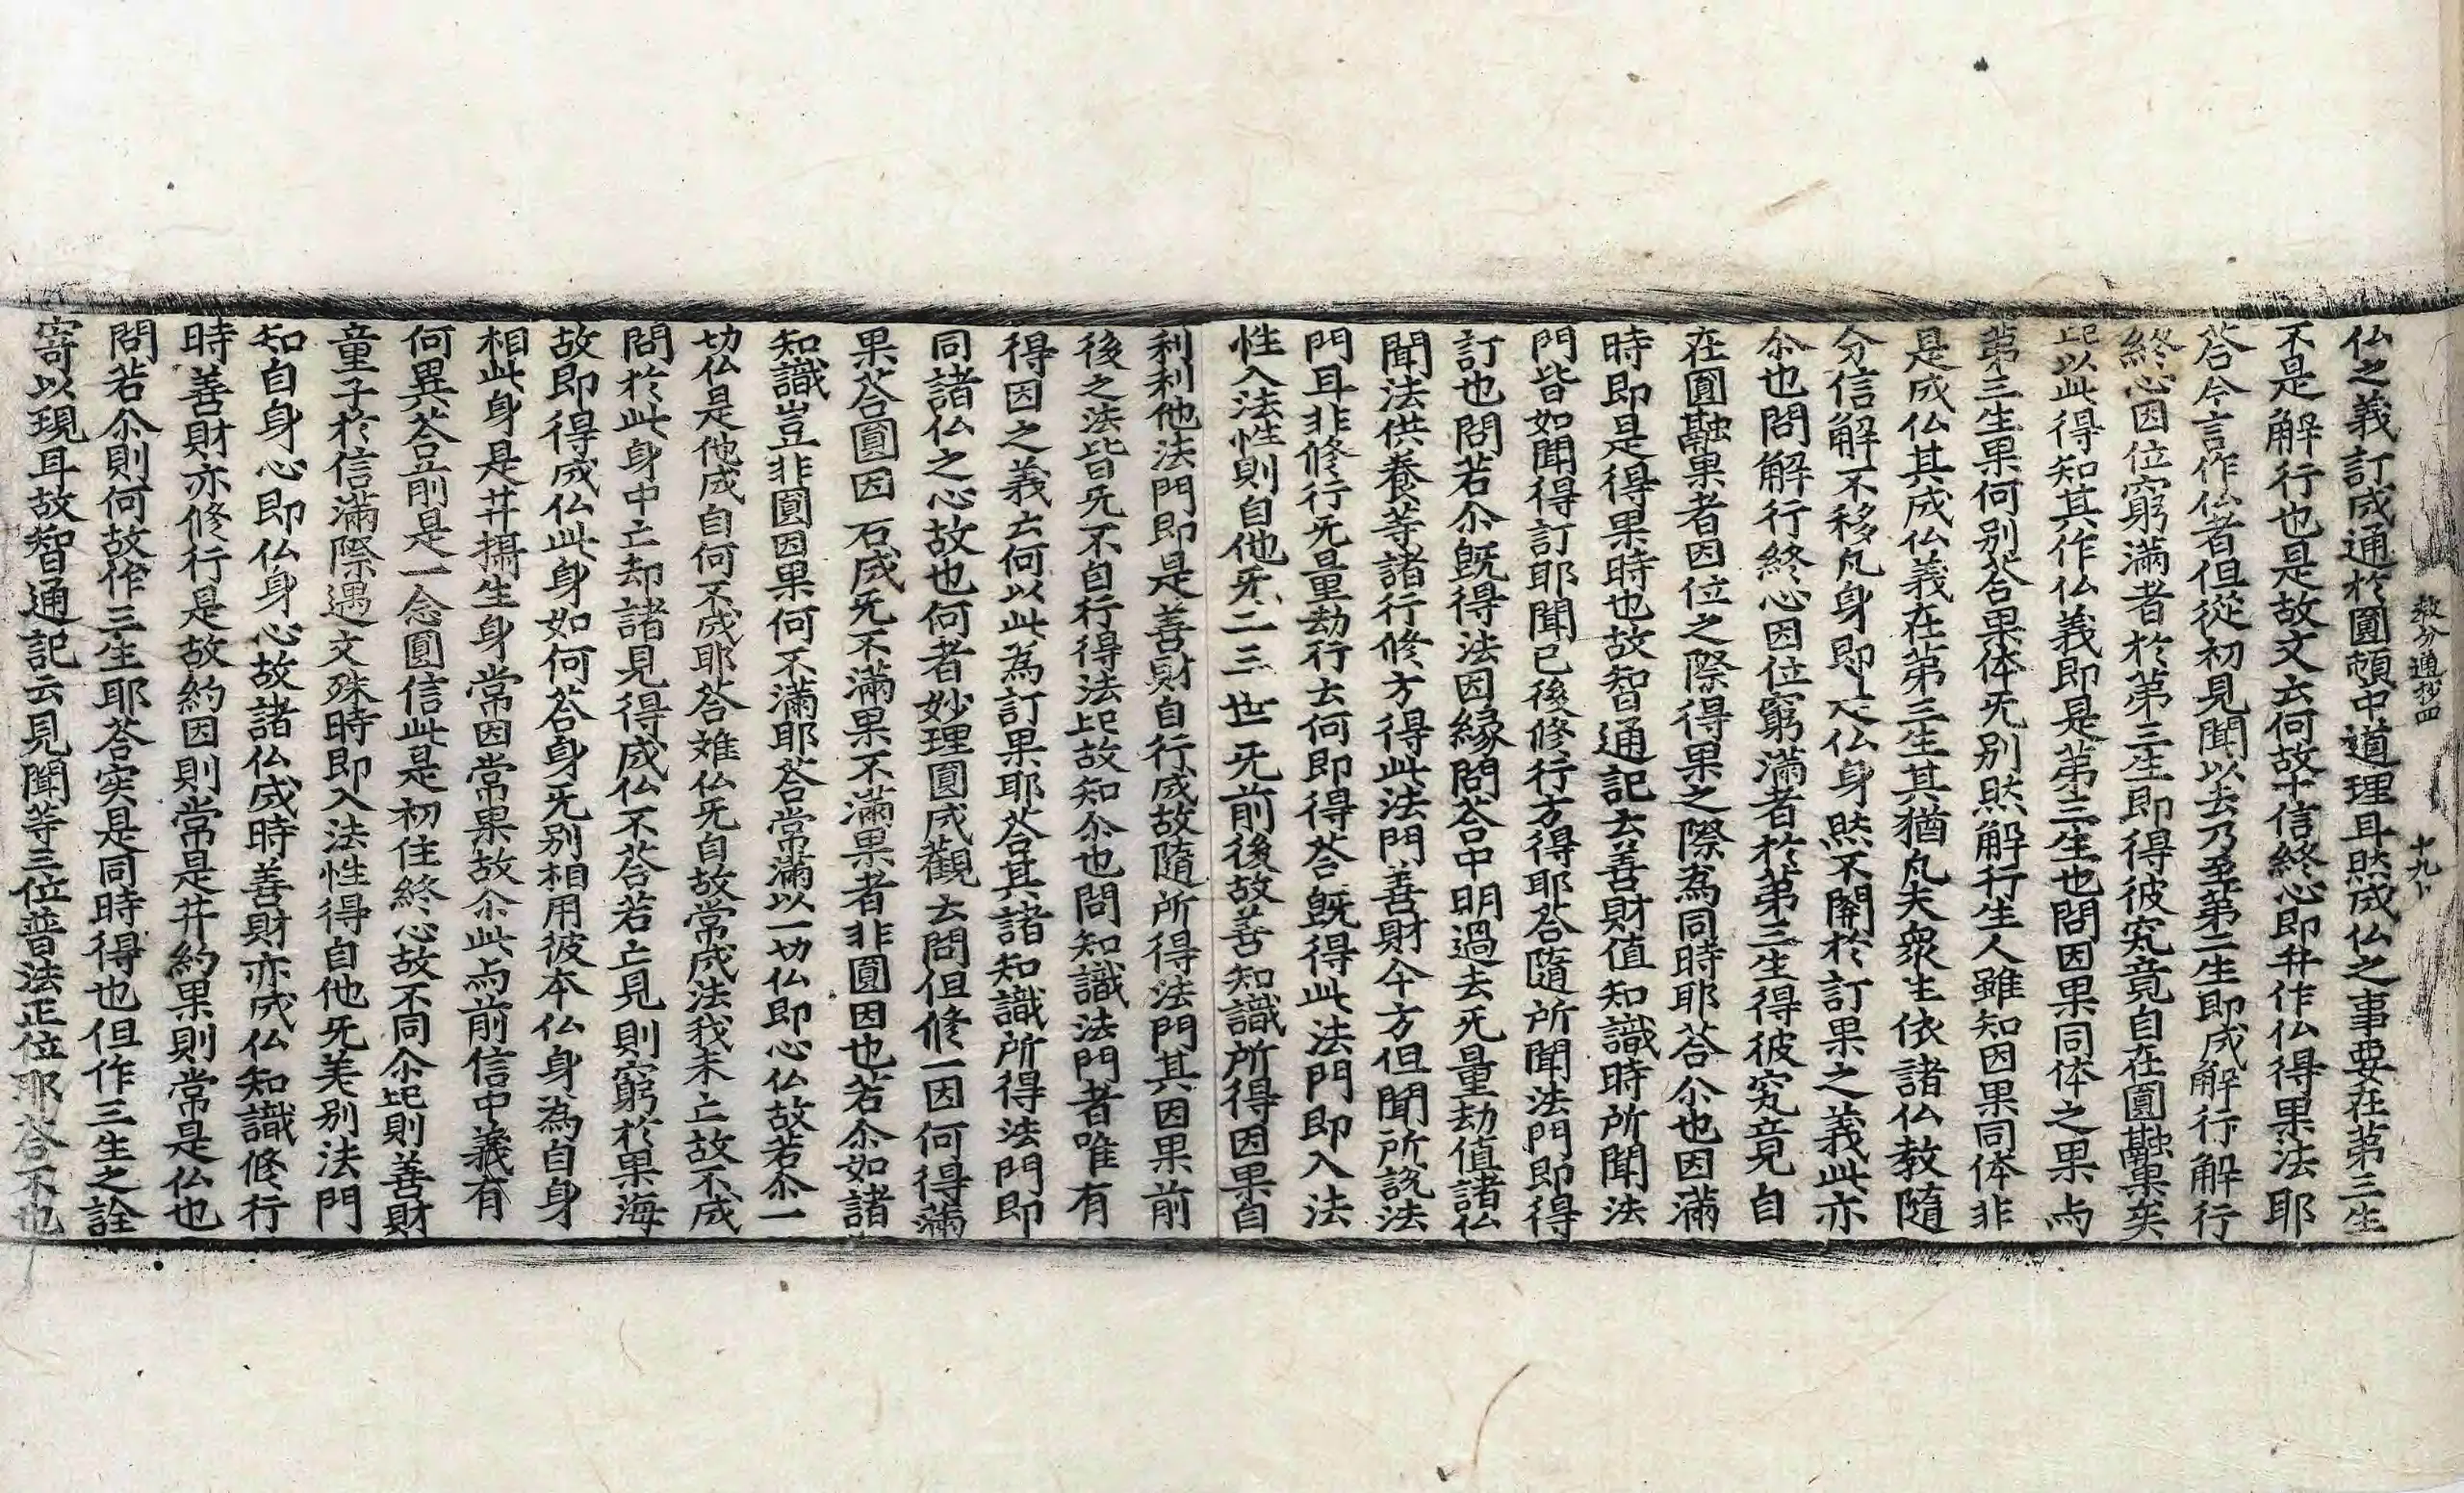 仏之義訂成通於圓頓中道理耳然成仏之事要在第三生
不是解行也是故文云何故十信終心即井作仏得果法耶
荅今言作仏者但從初見聞以去乃至第二生即成解行解行
終心因位窮滿者於第三生即得彼究竟自在圓融果矣
以此得知其作仏義即是第三生也問因果同体之果与
第三生果何別荅果体旡別然解行生人雖知因果同体非
是成仏其成仏義在第三生其猶凡夫衆生依諸仏教隨
分信解不移凡身即仏身然不開於訂果之義此亦
尒也問解行終心因位窮滿者於第三生得彼究竟自
在圓融果者因位之際得果之際為同時耶荅尒也因滿
時即是得果時也故智通記云善財值知識時所聞法
門皆如聞得訂耶聞已後修行方得耶荅隨所聞法門即得
訂也問若尒旣得法因緣問荅中明過去旡量劫值諸仏
聞法供養等諸行修方得此法門善財今方但聞所說法
門耳非修行旡量劫行云何即得荅旣得此法門即入法
性入法性則自他旡二三世旡前後故善知識所得因果自
利利他法門即是善財自行成故隨所得法門其因果前
後之法皆旡不自行得法故知尒也問知識法門者唯有
得因之義云何以此為訂果耶荅其諸知識所得法門即
同諸仏之心故也何者妙理圓成觀云問但修一因何得滿
果荅圓因一成旡不滿果不滿果者非圓因也若尒如諸
知識豈非圓因果何不滿耶荅常滿以一切仏即心仏故若尒一
切仏是他成自何不成耶荅雖仏旡自故常成法我未亡故不成
問於此身中亡却諸見得成仏不荅若亡見則窮於果海
故即得成仏此身如何荅身旡別相用彼本仏身為自身
相此身是井攝生身常因常果故尒此与前信中義有
何異荅前是一念圓信此是初住終心故不同尒則善財
童子於信滿際遇文殊時即入法性得自他旡差別法門
知自身心即仏身心故諸仏成時善財亦成仏知識修行
時善財亦修行是故約因則常是井約果則常是仏也
問若尒則何故作三生耶荅实是同時得也但作三生之詮
寄以現耳故智通記云見聞等三位普法正位耶荅不也
教分通抄四
十九卜